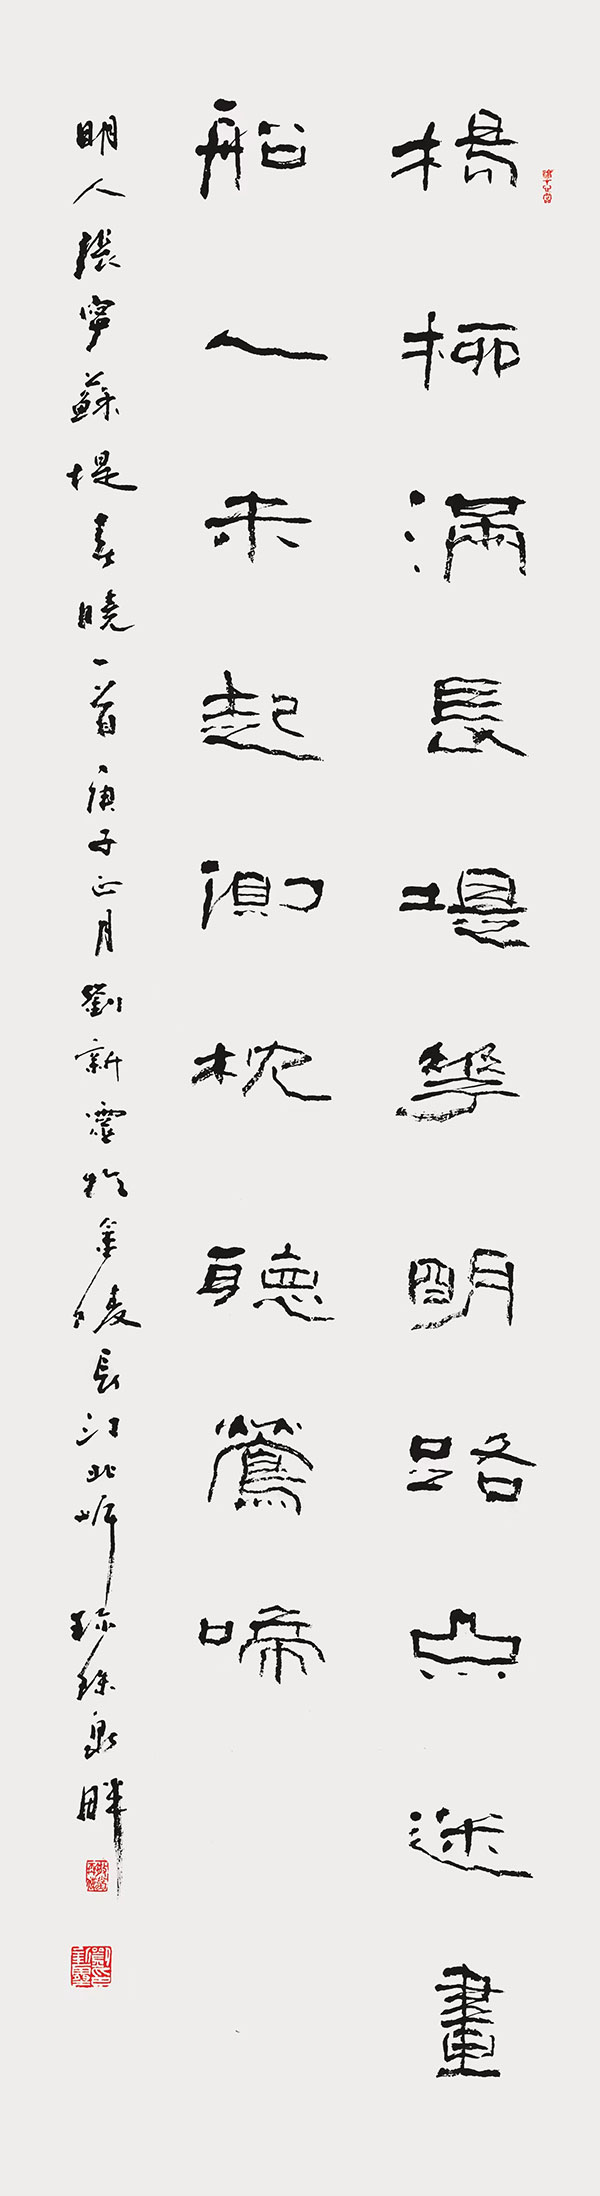 楊柳滿長堤花明路不迷畫
船人未起側枕聽鶯啼
明人張寧蘇堤春曉一首庚子正月劉新靈於金陵長江北岸珍珠泉畔